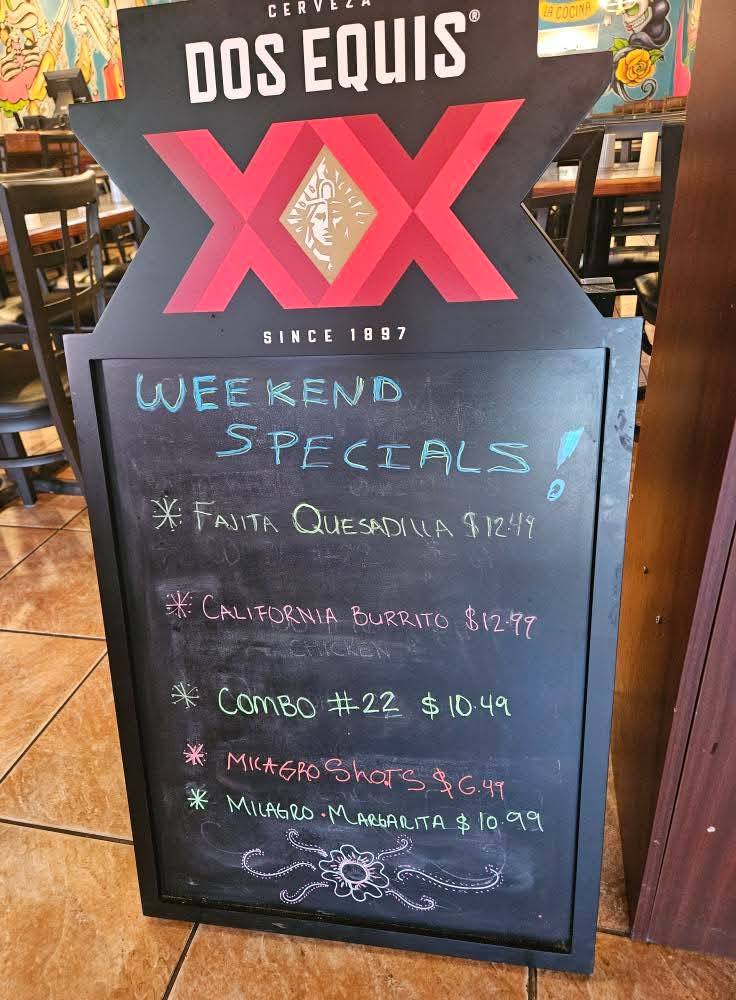 CERVEZA
LA COCINA
DOS EQUIS®
XX
SINCE 1897
WEEKEND
SPECIALS!
* FAJITA QUESADILLA $12.49
* CALIFORNIA BURRITO $12.99
CHICKEN
* COMBO #22 $10.49
* MILAGRO ShoTS $6.49
* MILAGRO • MARGARITA $10.99